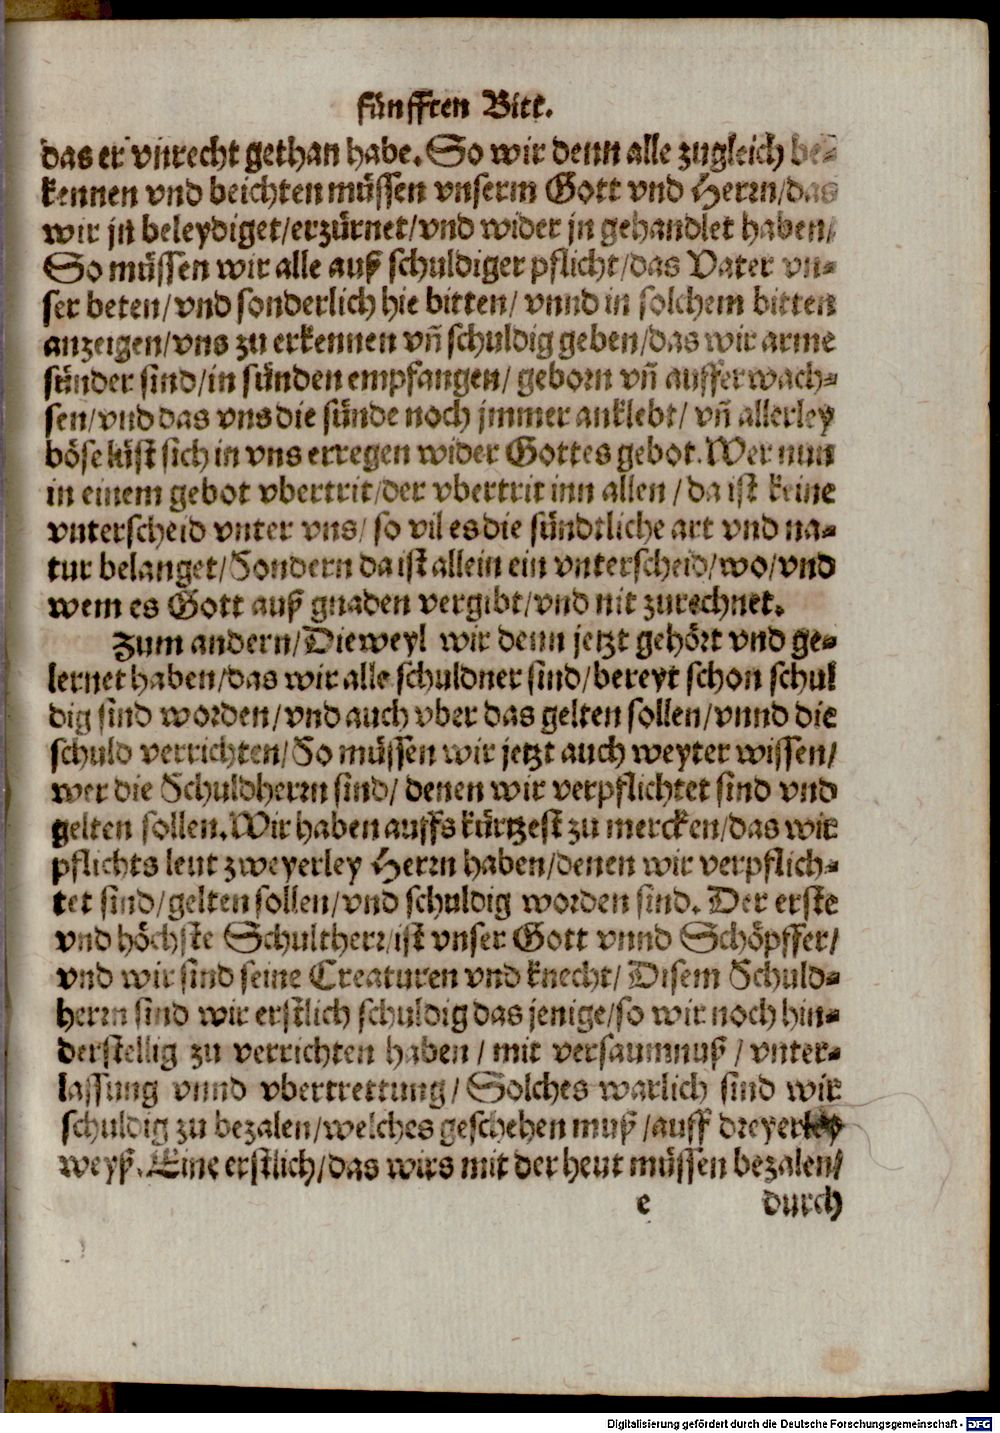 fünfften Bitt.
das er vnrecht gethan habe. So wir denn alle zugleich be-
kennen vnd beichten müssen vnserm Gott vnd Herrn/das
wir jn beleydiget/erzürnet/vnd wider jn gehandlet haben/
So müssen wir alle auß schuldiger pflicht/das Vater vn-
ser beten/vnd sonderlich hie bitten/ vnnd in solchem bitten
anzeigen/vns zu erkennen vñ schuldig geben/das wir arme
sünder sind/in sünden empfangen/ geborn vñ aufferwach-
sen/vnd das vns die sünde noch jmmer anklebt/ vñ allerley
böse lüst sich in vns erregen wider Gottes gebot. Wer nun
in einem gebot vbertrit/der vbertrit inn allen / da ist keine
vnterscheid vnter vns/ so vil es die sündtliche art vnd na-
tur belanget/Sondern da ist allein ein vnterscheid/wo/vnd
wem es Gott auß gnaden vergibt/vnd nit zurechnet.
Zum andern/Dieweyl wir denn jetzt gehört vnd ge-
lernet haben/das wir alle schuldner sind/bereyt schon schul
dig sind worden/vnd auch vber das gelten sollen/vnnd die
schuld verrichten/So müssen wir jetzt auch weyter wissen/
wer die Schuldherrn sind/ denen wir verpflichtet sind vnd
gelten sollen. Wir haben auffs kürtzest zu mercken/das wir
pflichts leut zweyerley Herrn haben/denen wir verpflich-
tet sind/gelten sollen/vnd schuldig worden sind. Der erste
vnd höchste Schultherr/ist vnser Gott vnnd Schöpffer/
vnd wir sind seine Creaturen vnd knecht/ Disem Schuld-
herrn sind wir erstlich schuldig das jenige/so wir noch hin-
derstellig zu verrichten haben / mit versaumnuß / vnter-
lassung vnnd vbertrettung/ Solches warlich sind wir
schuldig zu bezalen/welches geschehen muß /auff dreyerley
weyß. Eine erstlich/das wirs mit der heut müssen bezalen/
e durch
Digitalisierung gefördert durch die Deutsche Forschungsgemeinschaft - DFG